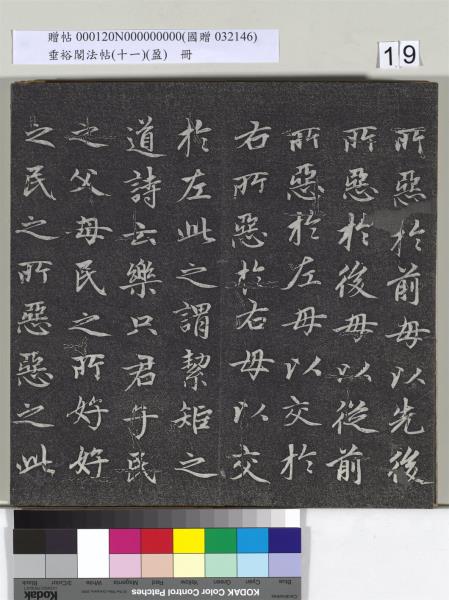 贈帖 000120N000000000(國贈 032146)
垂裕閣法帖(十一)(盈) 冊
19
所惡於前毋以先後
所惡於後毋以從前
所惡於左毋以交於
右所惡於右毋以交
於左此之謂絜矩之
道詩云樂只君子民
之父母民之所好好
之民之所惡惡之此
Blue
Cyan
Green
Yellow
Red
Magenta
White
3/Color
Black
KODAK Color Control Patches